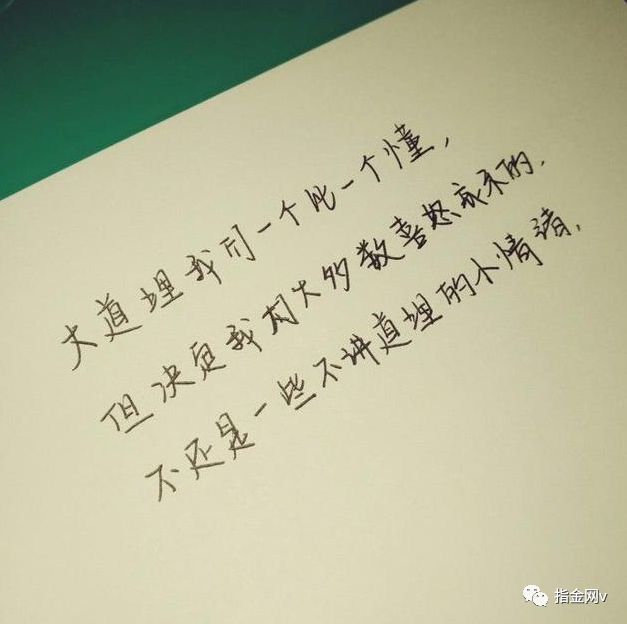 大道理我们一个比一个懂，
但决定我们大多数喜怒哀乐的，
不还是一些不讲道理的小情绪，
指金网v